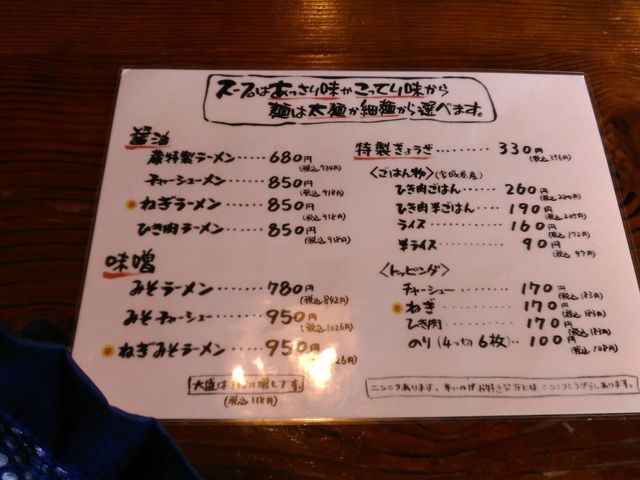 スープはあっさり味かこってり味から
麺は太麺か細麺から選べます。
醤油
蔵特製ラーメン……680円
(税込734円)
チャーシューメン……850円
(税込918円)
ねぎラーメン……850円
(税込918円)
ひき肉ラーメン……850円
(税込918円)
味噌
みそラーメン……780円
(税込842円)
みそチャーシュー……950円
(税込1026円)
ねぎみそラーメン……950円
大盛は
増しです。
(税込118円)
特製ぎょうざ………330円
(税込356円)
〈ごはん物〉(宮城県産)
ひき肉ごはん……260円
(税込280円)
ひき肉半ごはん……190円
(税込205円)
ライス…………160円
(税込172円)
半ライス…………90円
(税込97円)
〈トッピング〉
チャーシュー………170円
(税込183円)
ねぎ…………170円
(税込183円)
ひき肉…………170円
(税込183円)
のり(4ッ切6枚)‥100円
(税込108円)
ニンニクあります。辛いのがお好きな方には、ニンニクとうがらしあります。